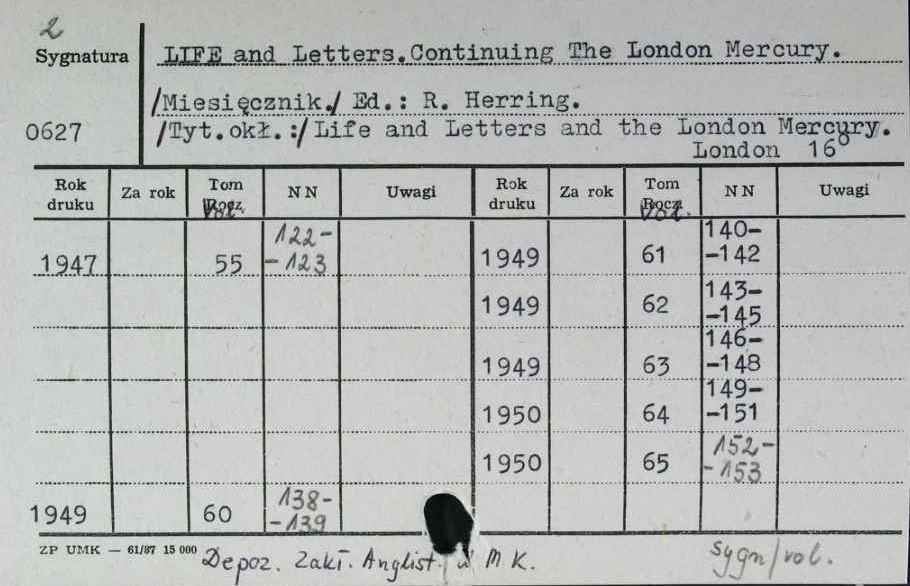 2
Sygnatura
LIFE and Letters.Continuing The London Mercury.
/Miesięcznik./ Ed.: R. Herring.
0627
/Tyt.okł.:/Life and Letters and the London Mercury.
London 16°
Rok druku Za rok Tom Vol. NN Uwagi Rok druku Za rok Tom Vol. NN Uwagi
1947 55 122-
-123
1949 61 140-
-142
1949 62 143-
-145
1949 63 146-
-148
1950 64 149-
-151
1950 65 152-
-153
1949 60 138-
-139
ZP UMK — 61/87 15 000
Depoz. Zakł. Anglist. UMK.
sygn/vol.